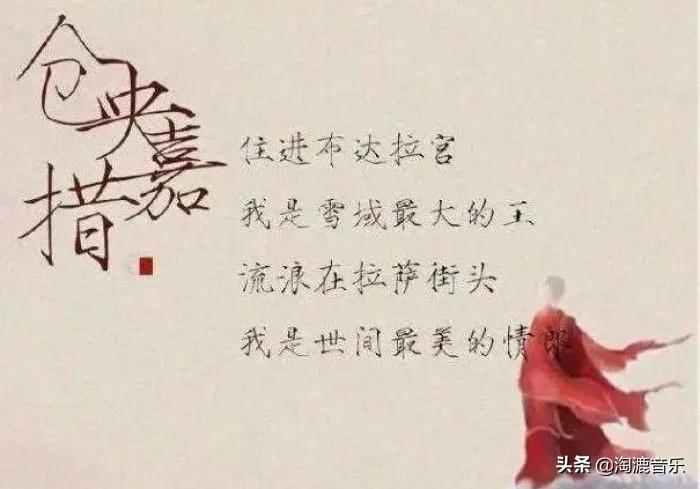 仓央嘉措
住进布达拉宫
我是雪域最大的王
流浪在拉萨街头
我是世间最美的情郎
头条 @淘漉音乐